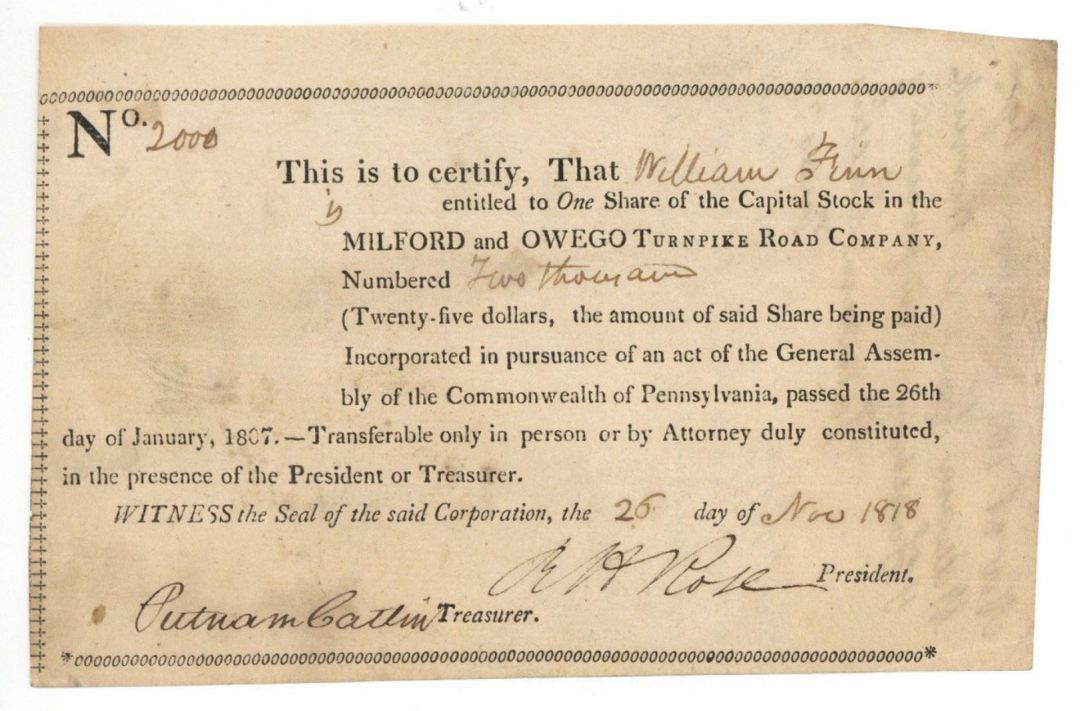 No. 2000
This is to certify, That William Finn
is entitled to One Share of the Capital Stock in the
MILFORD and OWEGO TURNPIKE ROAD COMPANY,
Numbered Two thousand
(Twenty-five dollars, the amount of said Share being paid)
Incorporated in pursuance of an act of the General Assem-
bly of the Commonwealth of Pennsylvania, passed the 26th
day of January, 1807.—Transferable only in person or by Attorney duly constituted,
in the presence of the President or Treasurer.
WITNESS the Seal of the said Corporation, the 26 day of Nov 1818
R H Rose President.
Putnam Catlin Treasurer.